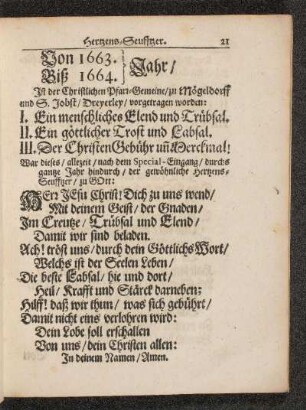 Hertzens-Seufftzer. 21
Von 1663.
Biß 1664. } Jahr/
In der Christlichen Pfarr-Gemeine/ zu Mögeldorff
und S. Jobst/ Dreyerley/ vorgetragen worden:
I. Ein menschliches Elend und Trübsal.
II. Ein göttlicher Trost und Labsal.
III. Der Christen Gebühr uñ Merckmal!
War dieses/ allezeit/ nach dem Special-Eingang/ durchs
gantze Jahr hindurch/ der gewöhnliche Hertzens-
Seufftzer/ zu GOtt:
HErr JEsu Christ! Dich zu uns wend/
Mit deinem Geist/ der Gnaden/
Im Creutze/ Trübsal und Elend/
Damit wir sind beladen.
Ach! tröst uns/ durch dein Göttlichs Wort/
Welchs ist der Seelen Leben/
Die beste Labsal/ hie und dort/
Heil/ Krafft und Stärck darneben;
Hilff! daß wir thun/ was sich gebührt/
Damit nicht eins verlohren wird:
Dein Lobe soll erschallen
Von uns/ dein Christen allen:
In deinem Namen/ Amen.